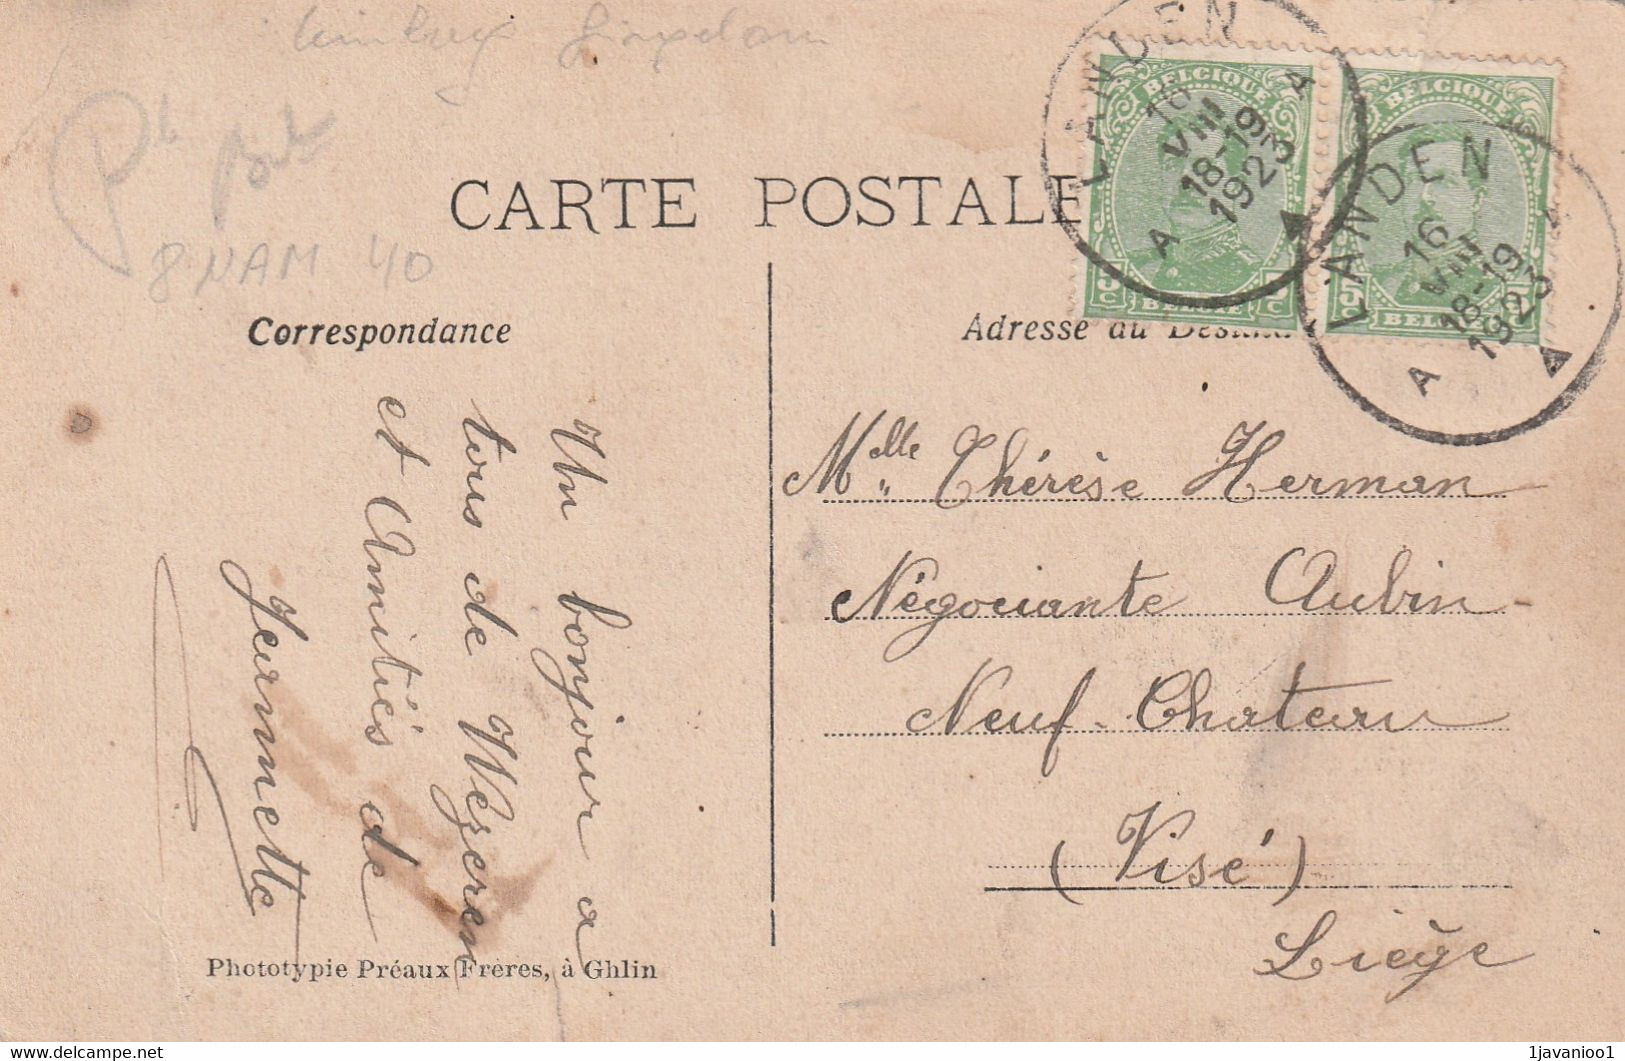 Pt
8 NAM 40
CARTE POSTALE
LANDEN
VIII
18-19
1923
A A
BELGIQUE
BELGIË
5 C 5 C
LANDEN
16
VIII
18-19
1923
A
BELGIQUE
Correspondance
Un bonjour a
tous de Wezeren
et Amitiés de
Jeannette
Phototypie Préaux Frères, à Ghlin
Adresse du
Melle Thérèse Herman
Négociante Aubin-
Neuf-Chateau
(Visé)
Liège
delcampe.net
1javanioo1